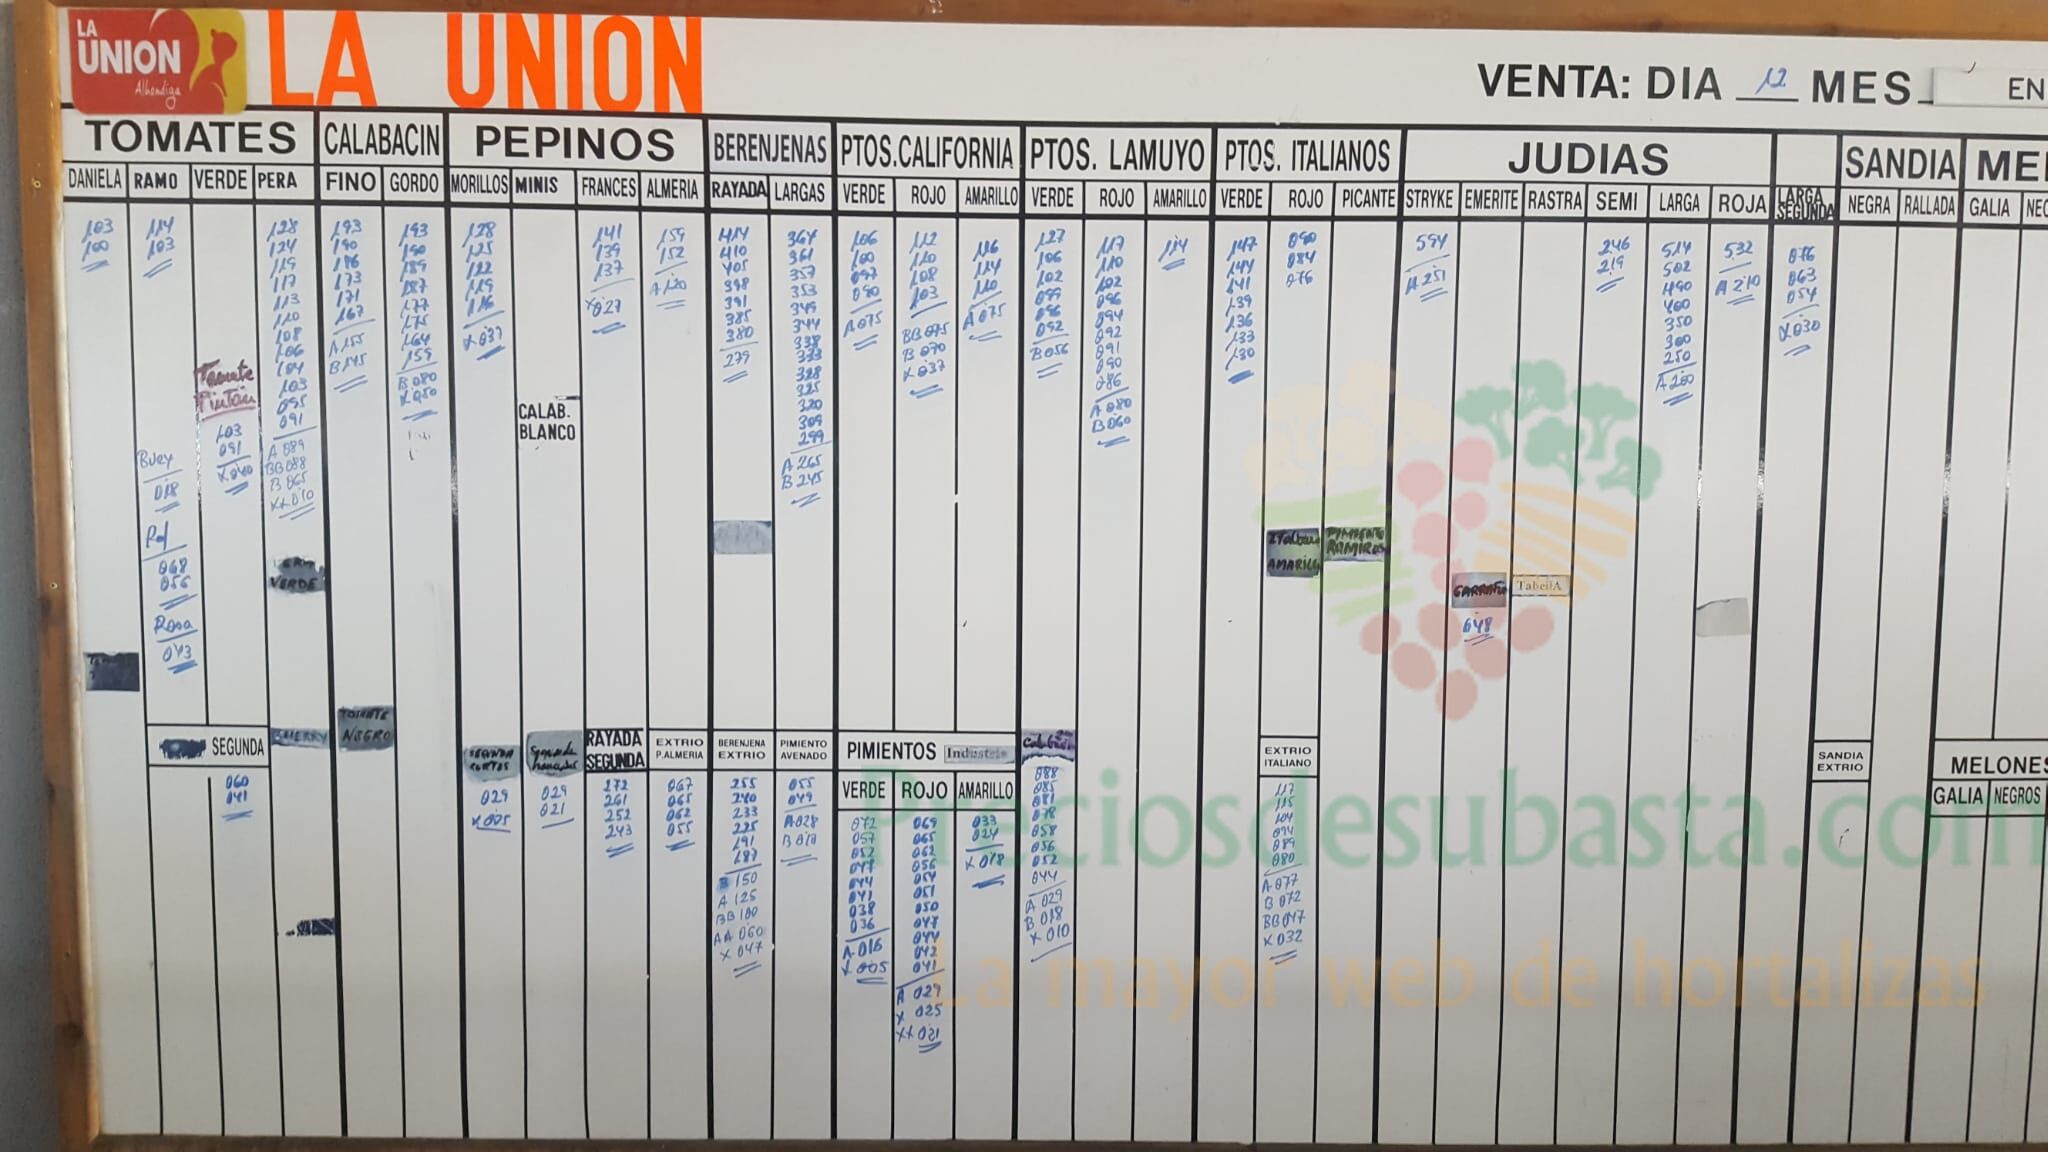 LA UNION
Alhóndiga
LA UNION
VENTA: DIA 12 MES EN
TOMATES CALABACIN PEPINOS BERENJENAS PTOS.CALIFORNIA PTOS. LAMUYO PTOS. ITALIANOS JUDIAS SANDIA ME
DANIELA RAMO VERDE PERA FINO GORDO MORILLOS MINIS FRANCES ALMERIA RAYADA LARGAS VERDE ROJO AMARILLO VERDE ROJO AMARILLO VERDE ROJO PICANTE STRYKE EMERITE RASTRA SEMI LARGA ROJA LARGA SEGUNDA NEGRA RALLADA GALIA NEG
103
100
114
103
Buey
018
Raf
068
056
Rosa
043
Tomate
Pintón
103
091
X 040
128
124
119
117
113
110
108
106
104
103
095
091
A 089
BB 088
B 065
XX 010
VERDE
193
190
186
173
171
167
A 155
B 145
193
190
189
187
177
175
164
159
B 080
X 050
128
125
122
119
116
X 037
CALAB.
BLANCO
141
139
137
X 027
159
152
A 120
414
410
405
398
391
385
380
279
364
361
357
353
349
344
338
333
328
325
320
309
299
A 265
B 245
106
100
097
090
A 075
112
110
108
103
BB 075
B 070
X 037
116
114
110
A 075
127
106
102
099
096
092
B 056
117
110
102
096
094
092
091
090
086
A 080
B 060
114
147
144
141
139
136
133
130
090
084
076
AMARILLO
PIMIENTO
RAMIRO
594
A 251
GARRAFAL
048
TabellA
246
219
514
502
490
400
350
300
250
A 200
532
A 210
076
063
054
X 030
SEGUNDA
060
041
CHERRY
TOMATE
NEGRO
SEGUNDA
CORTOS
029
X 005
Segunda
029
021
RAYADA
SEGUNDA
272
261
252
243
EXTRIO
P.ALMERIA
067
065
062
055
BERENJENA
EXTRIO
255
240
233
225
191
187
B 150
A 125
BB 100
AA 060
X 047
PIMIENTO
AVENADO
055
049
A 028
B 018
PIMIENTOS Industria
VERDE ROJO AMARILLO
072
057
052
047
044
041
038
036
A 016
X 005
069
065
062
056
054
051
050
047
044
042
041
A 029
X 025
XX 021
033
024
X 018
088
085
081
078
058
056
052
044
A 029
B 018
X 010
EXTRIO
ITALIANO
117
115
104
094
089
080
A 077
B 072
BB 047
X 032
SANDIA
EXTRIO
MELONES
GALIA NEGROS
Preciosdesubasta.com
La mayor web de hortalizas